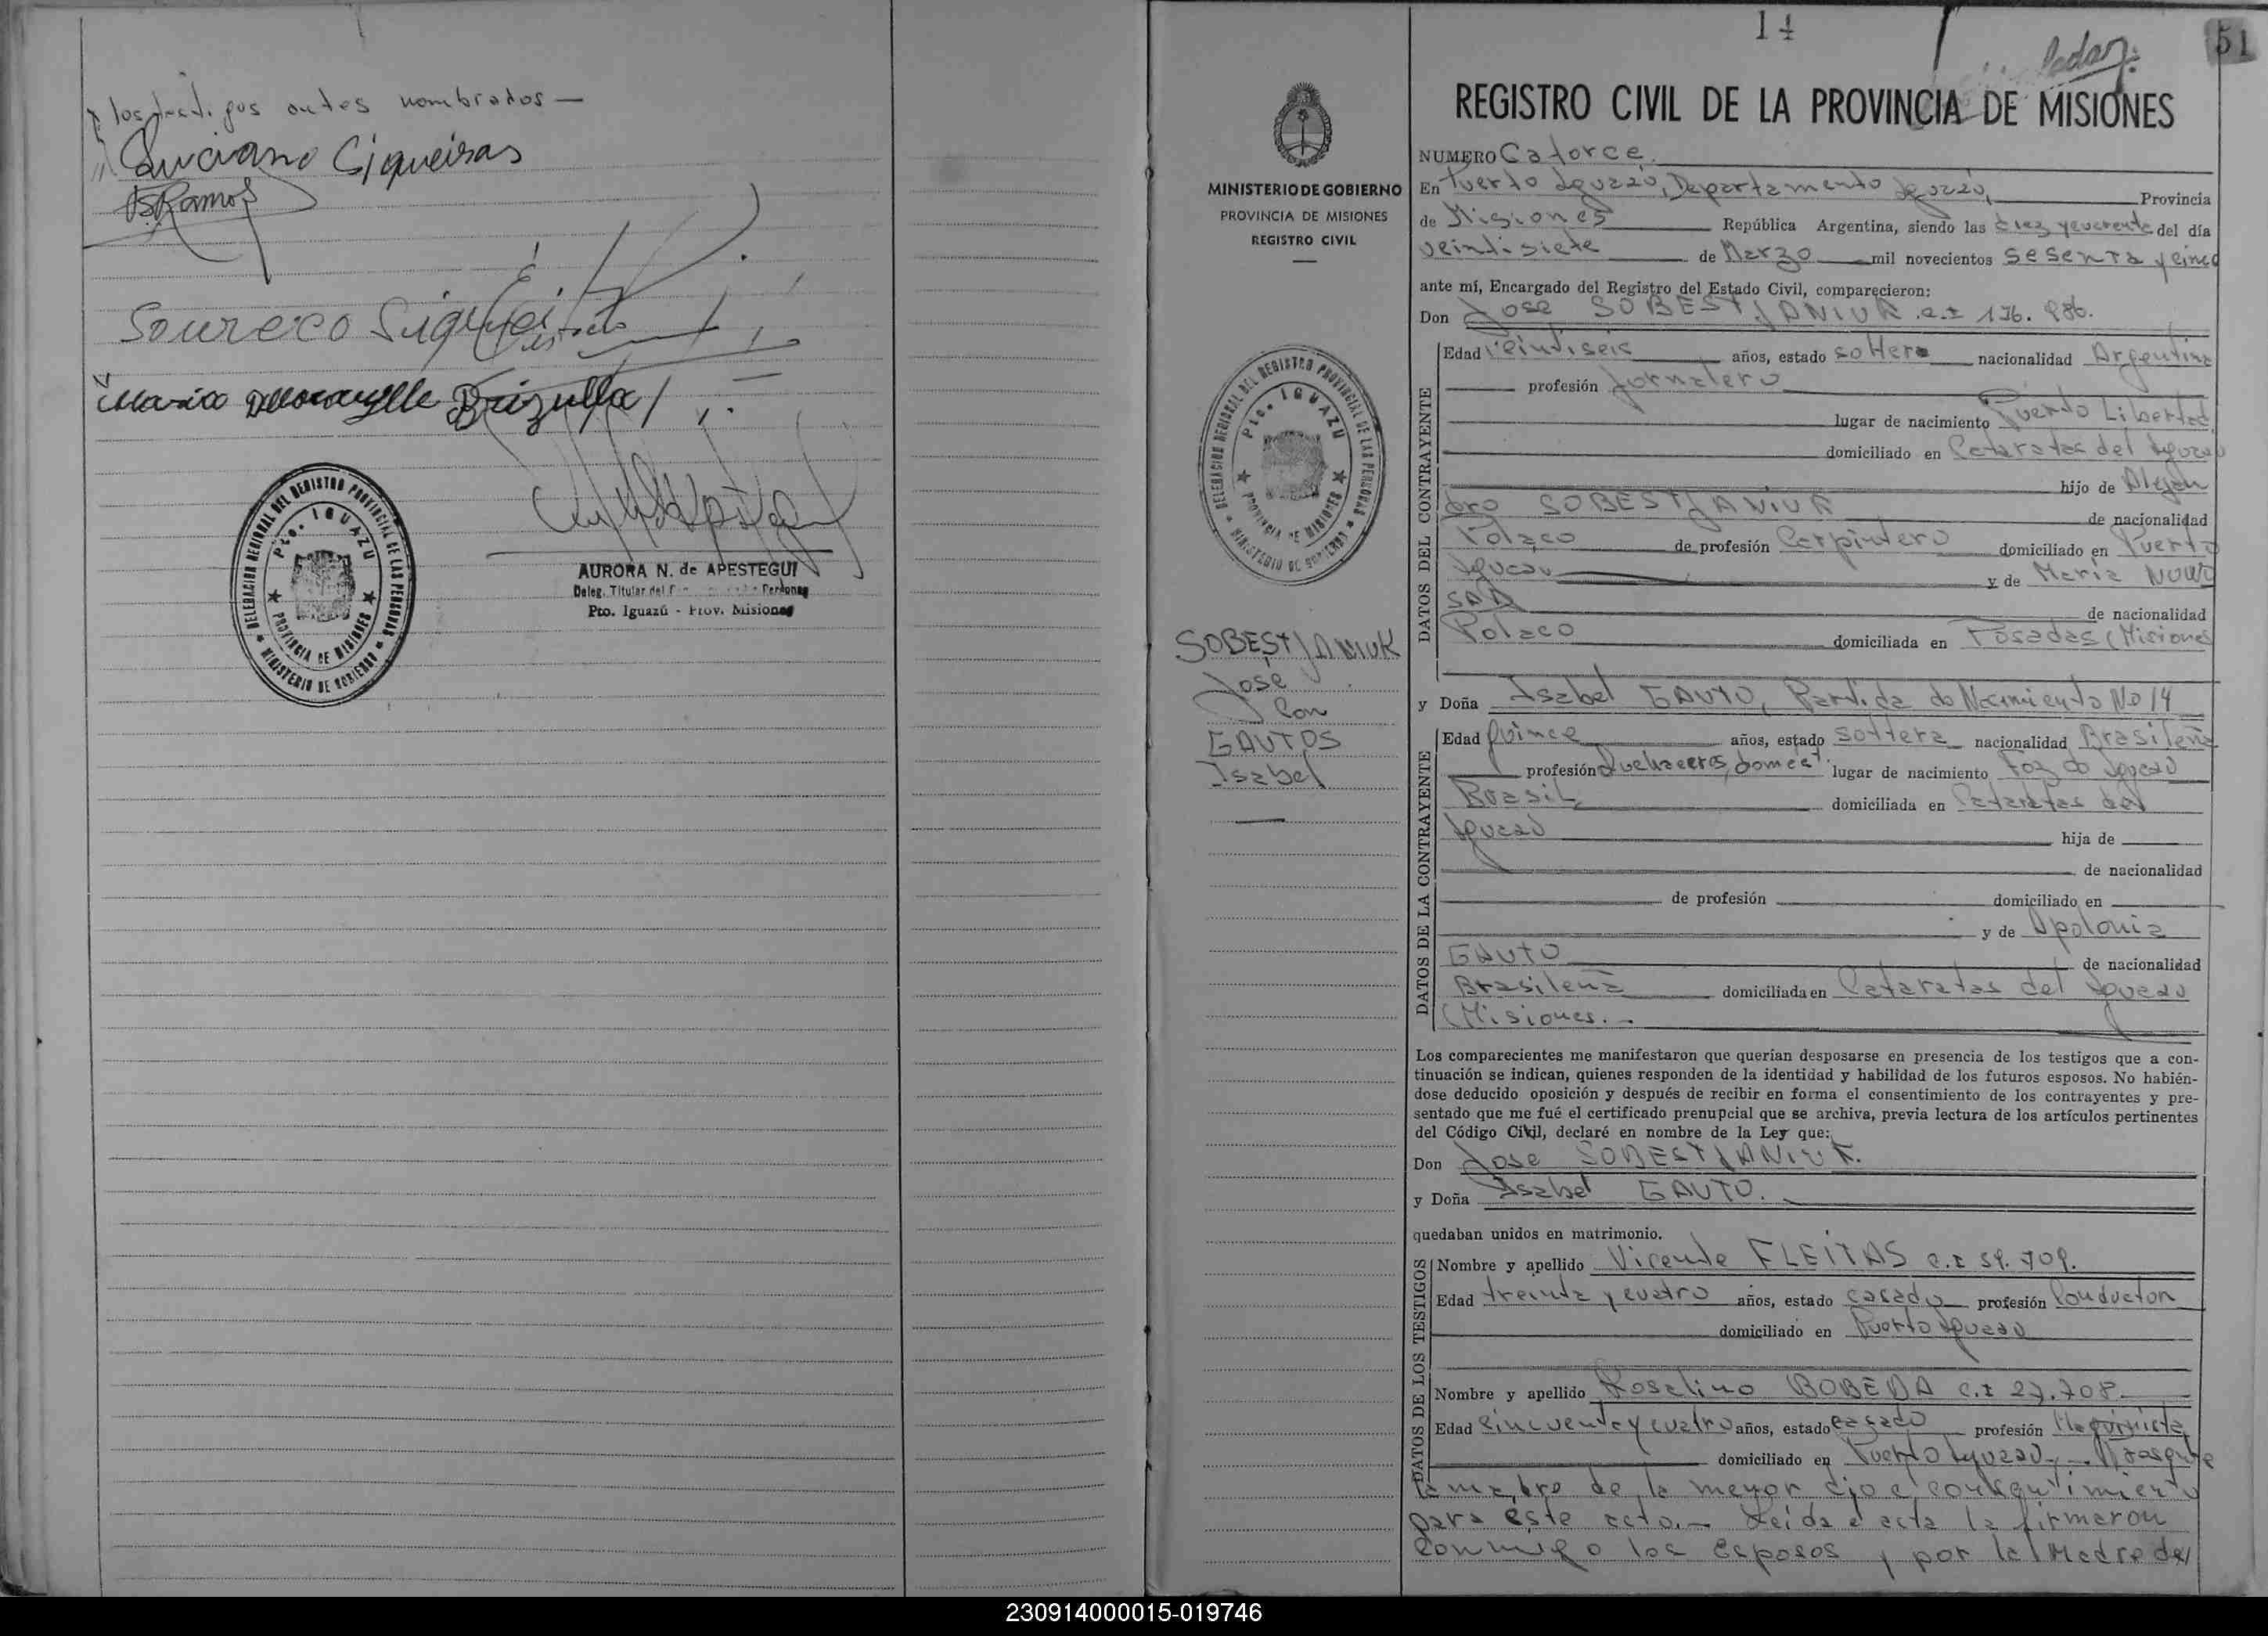 y los testigos antes nombrados —
Luciano Siqueiras
Ramos
Soureco Siqueira
Maria Brizuela
DELEGACION REGIONAL DEL REGISTRO PROVINCIAL DE LAS PERSONAS
Pto. IGUAZU
PROVINCIA DE MISIONES
MINISTERIO DE GOBIERNO
AURORA N. de APESTEGUI
Deleg. Titular del Personas
Pto. Iguazú - Prov. Misiones
MINISTERIO DE GOBIERNO
PROVINCIA DE MISIONES
REGISTRO CIVIL
DELEGACION REGIONAL DEL REGISTRO PROVINCIAL DE LAS PERSONAS
Pto. IGUAZU
PROVINCIA DE MISIONES
MINISTERIO DE GOBIERNO
SOBESTJANIUK
José
Con
GAUTOS
Isabel
14
51
REGISTRO CIVIL DE LA PROVINCIA DE MISIONES
NUMERO Catorce.
En Puerto Iguazú, Departamento Iguazú, Provincia
de Misiones República Argentina, siendo las diez y cuarenta del día
veintisiete de Marzo mil novecientos sesenta y cinco
ante mí, Encargado del Registro del Estado Civil, comparecieron:
Don Jose SOBESTJANIUK c.I 176.986.
DATOS DEL CONTRAYENTE
Edad veintiseis años, estado soltero nacionalidad Argentina
profesión Jornalero
lugar de nacimiento Puerto Libertad
domiciliado en Cataratas del Iguazú
hijo de Alejan
dro SOBESTJANIUK de nacionalidad
Polaco de profesión Carpintero domiciliado en Puerto
Iguazú y de Maria NOWO
SAD de nacionalidad
Polaco domiciliada en Posadas (Misiones
y Doña Isabel GAUTO, Partida de Nacimiento No 14
DATOS DE LA CONTRAYENTE
Edad Quince años, estado soltera nacionalidad Brasileña
profesión Quehaceres domest. lugar de nacimiento Foz do Iguazú
Brasil domiciliada en Cataratas del
Iguazú hija de
de nacionalidad
de profesión domiciliado en
y de Apolonia
GAUTO de nacionalidad
Brasileña domiciliada en Cataratas del Iguazú
(Misiones.-
Los comparecientes me manifestaron que querían desposarse en presencia de los testigos que a con-
tinuación se indican, quienes responden de la identidad y habilidad de los futuros esposos. No habién-
dose deducido oposición y después de recibir en forma el consentimiento de los contrayentes y pre-
sentado que me fué el certificado prenupcial que se archiva, previa lectura de los artículos pertinentes
del Código Civil, declaré en nombre de la Ley que:
Don Jose SOBESTJANIUK.
y Doña Isabel GAUTO.
quedaban unidos en matrimonio.
DATOS DE LOS TESTIGOS
Nombre y apellido Vicente FLEITAS c.I 59.709.
Edad treinta y cuatro años, estado casado profesión Conductor
domiciliado en Puerto Iguazú
Nombre y apellido Rosalino BOBEDA c.I 27.708.
Edad cincuenta y cuatro años, estado casado profesión Maquinista
domiciliado en Puerto Iguazú,
la madre de la menor dio el consentimiento
para este acto.- Leida el acta la firmaron
conmigo los esposos y por la Madre del
230914000015-019746